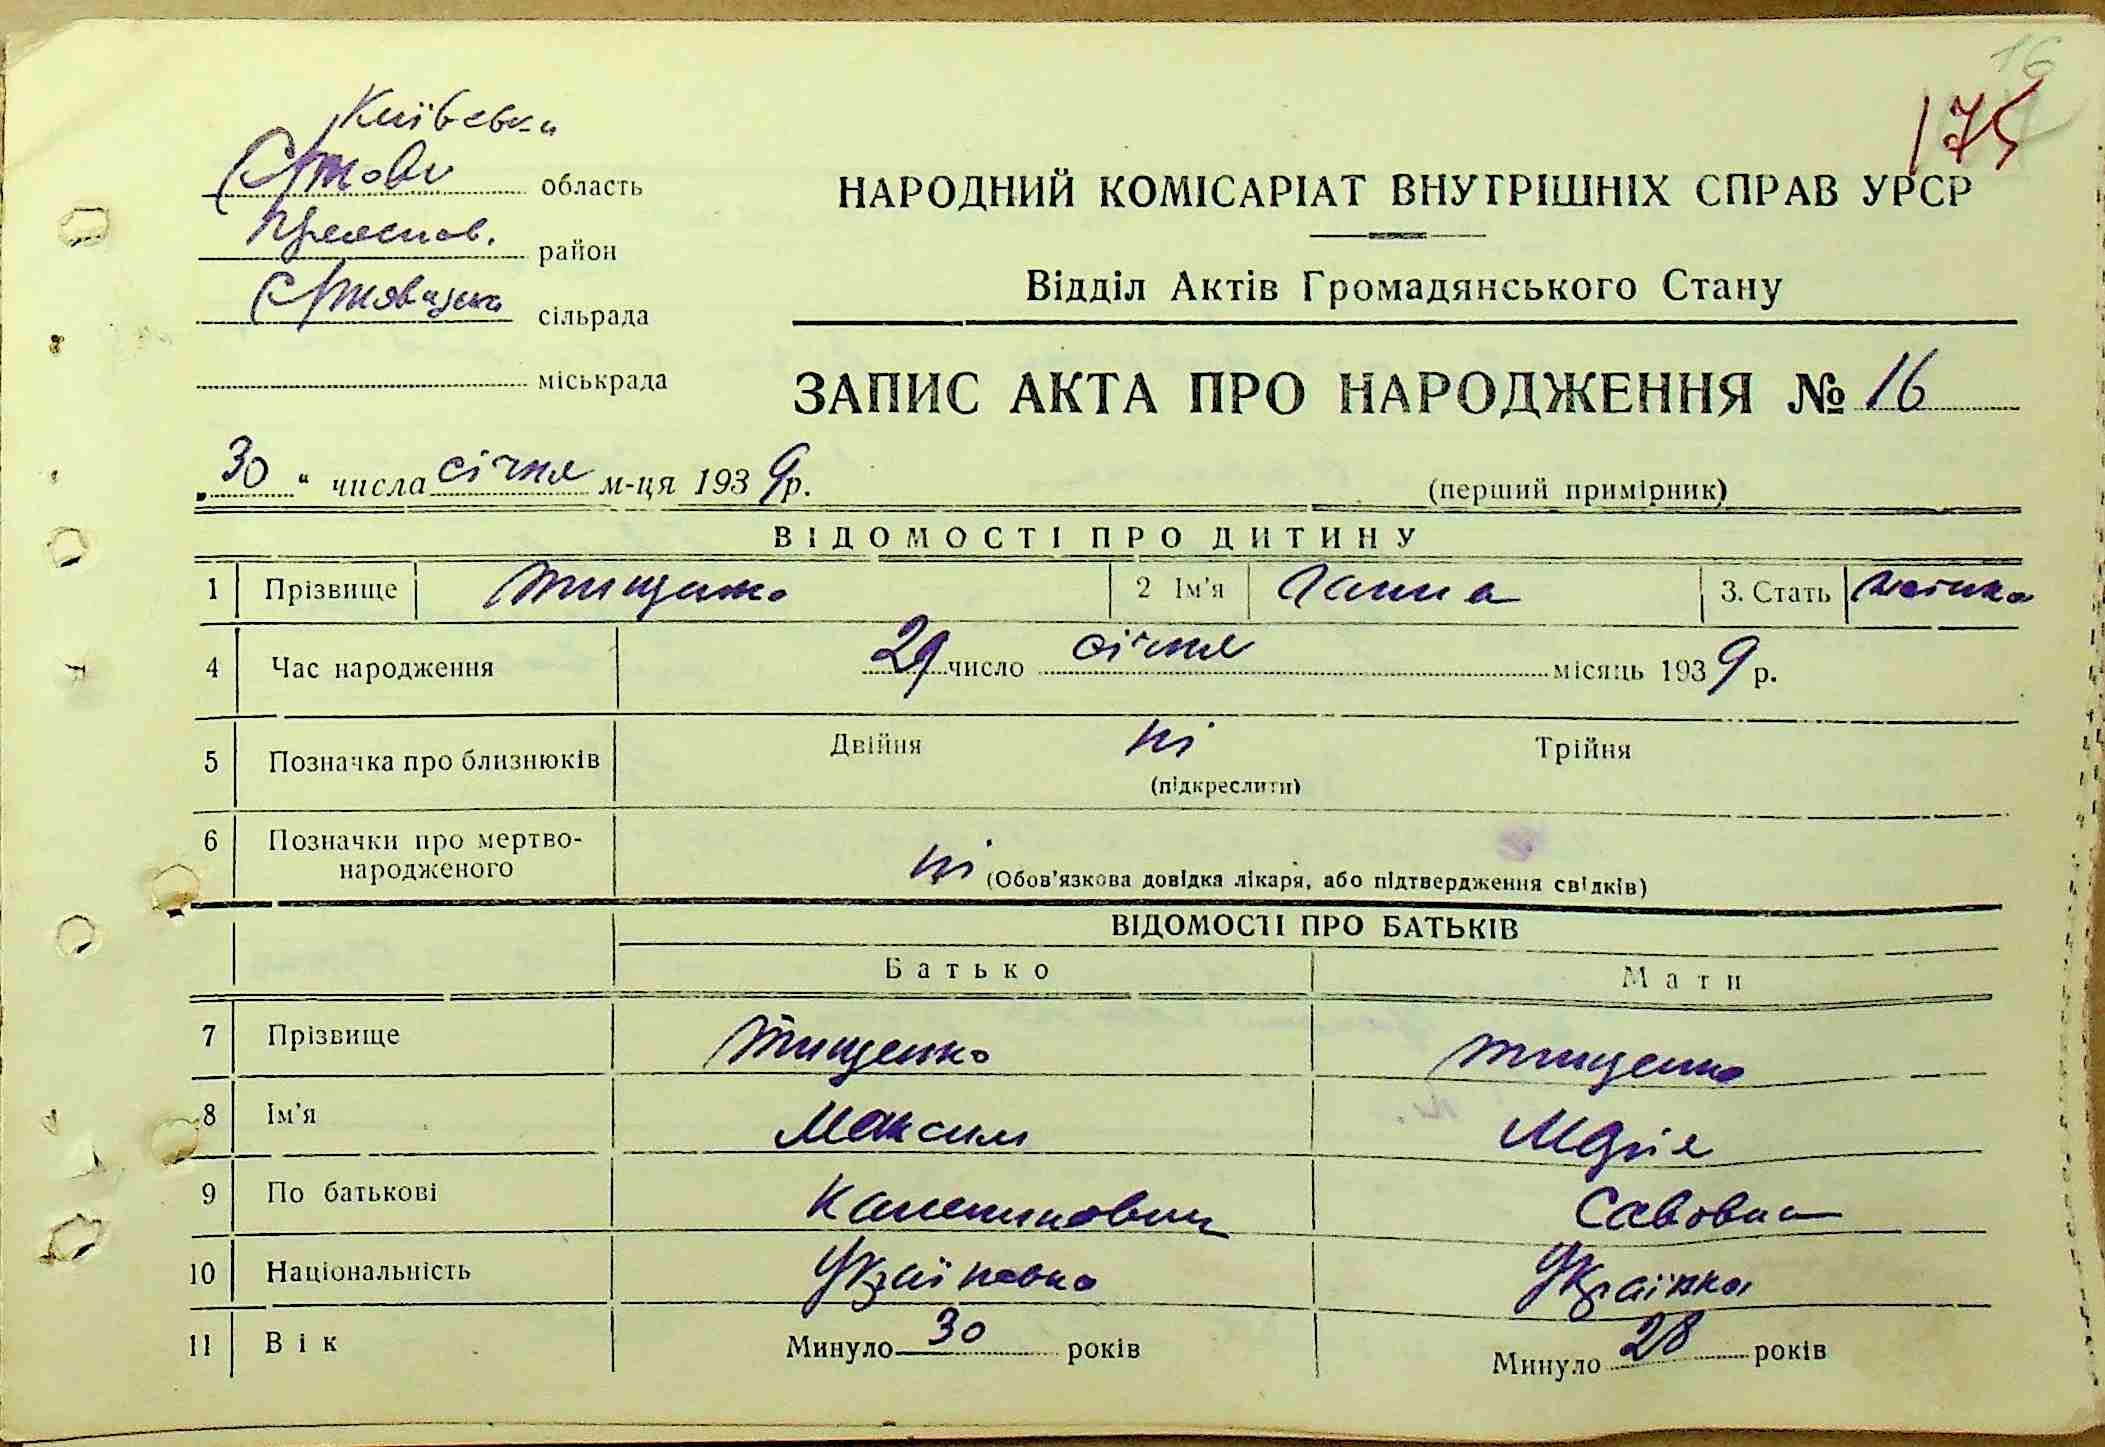 16
175
Київська
область
район
сільрада
міськрада
НАРОДНИЙ КОМІСАРІАТ ВНУТРІШНІХ СПРАВ УРСР
Відділ Актів Громадянського Стану
ЗАПИС АКТА ПРО НАРОДЖЕННЯ № 16
„30“ числа січня м-ця 1939р.
(перший примірник)
ВІДОМОСТІ ПРО ДИТИНУ
1 Прізвище Тищенко 2 Ім'я Ганна 3. Стать жіноча
4 Час народження 29 число січня місяць 1939 р.
5 Позначка про близнюків Двійня ні Трійня
(підкреслити)
6 Позначки про мертво-
народженого ні (Обов'язкова довідка лікаря, або підтвердження свідків)
ВІДОМОСТІ ПРО БАТЬКІВ
Батько Мати
7 Прізвище Тищенко Тищенко
8 Ім'я Максим Марія
9 По батькові Савовна
10 Національність Українка
11 Вік Минуло 30 років Минуло 28 років